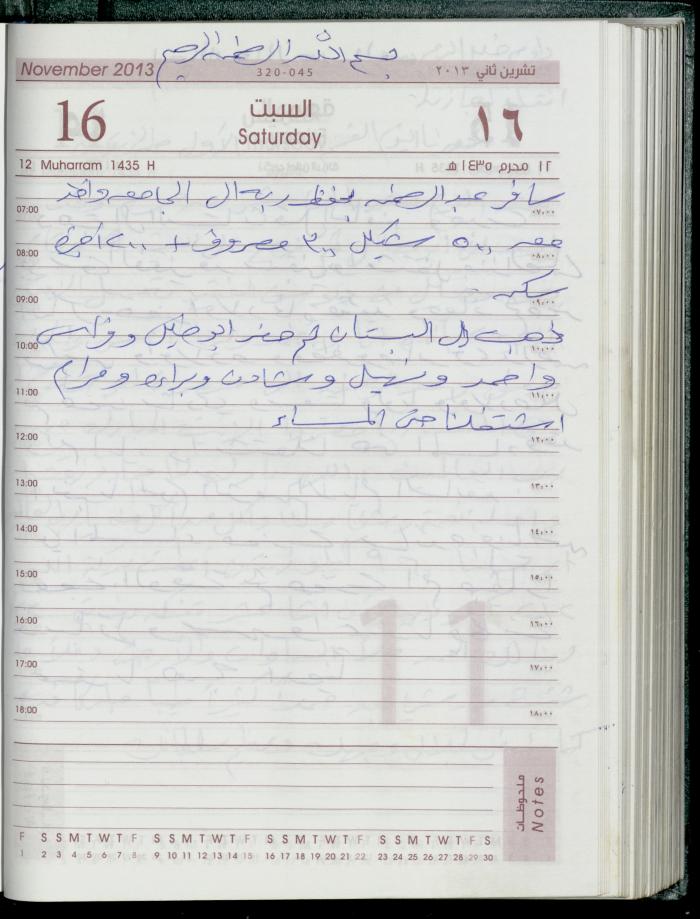 بسم الله الرحمن الرحيم
November 2013 320-045 تشرين ثاني ٢٠١٣
16 السبت ١٦
Saturday
12 Muharram 1435 H ١٢ محرم ١٤٣٥ هـ
سافر عبد الرحمن بحفظ ربه ال الجامعه واخذ
07:00 ٠٧:٠٠
معه ٥٠٠ شيكل ٣٠٠ مصروف + ٢٠٠ اجرة
08:00 ٠٨:٠٠
سكن
09:00 ٠٩:٠٠
ذهبت ال البستان ثم حضر ابو خليل وفراس
10:00 ١٠:٠٠
واحمد ونبيل وشادن وبراءه ومرام
11:00 ١١:٠٠
اشتغلنا حتى المساء
12:00 ١٢:٠٠
13:00 ١٣:٠٠
14:00 ١٤:٠٠
15:00 ١٥:٠٠
16:00 ١٦:٠٠
17:00 ١٧:٠٠
18:00 ١٨:٠٠
11
ملحوظات
Notes
F S S M T W T F S S M T W T F S S M T W T F S S M T W T F S
1 2 3 4 5 6 7 8 9 10 11 12 13 14 15 16 17 18 19 20 21 22 23 24 25 26 27 28 29 30